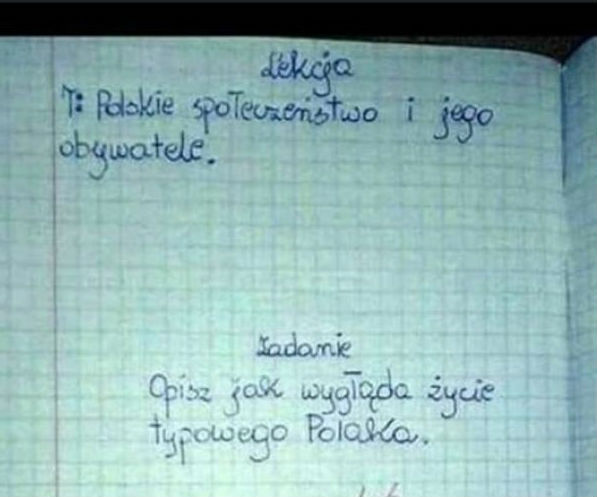 Lekcja
T: Polskie społeczeństwo i jego
obywatele.
Zadanie
Opisz jak wygląda życie
typowego Polaka.